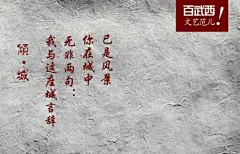 百武西
文艺范儿！
倾·城
我与这座城言辞
无非两句：
你在城中
已是风景